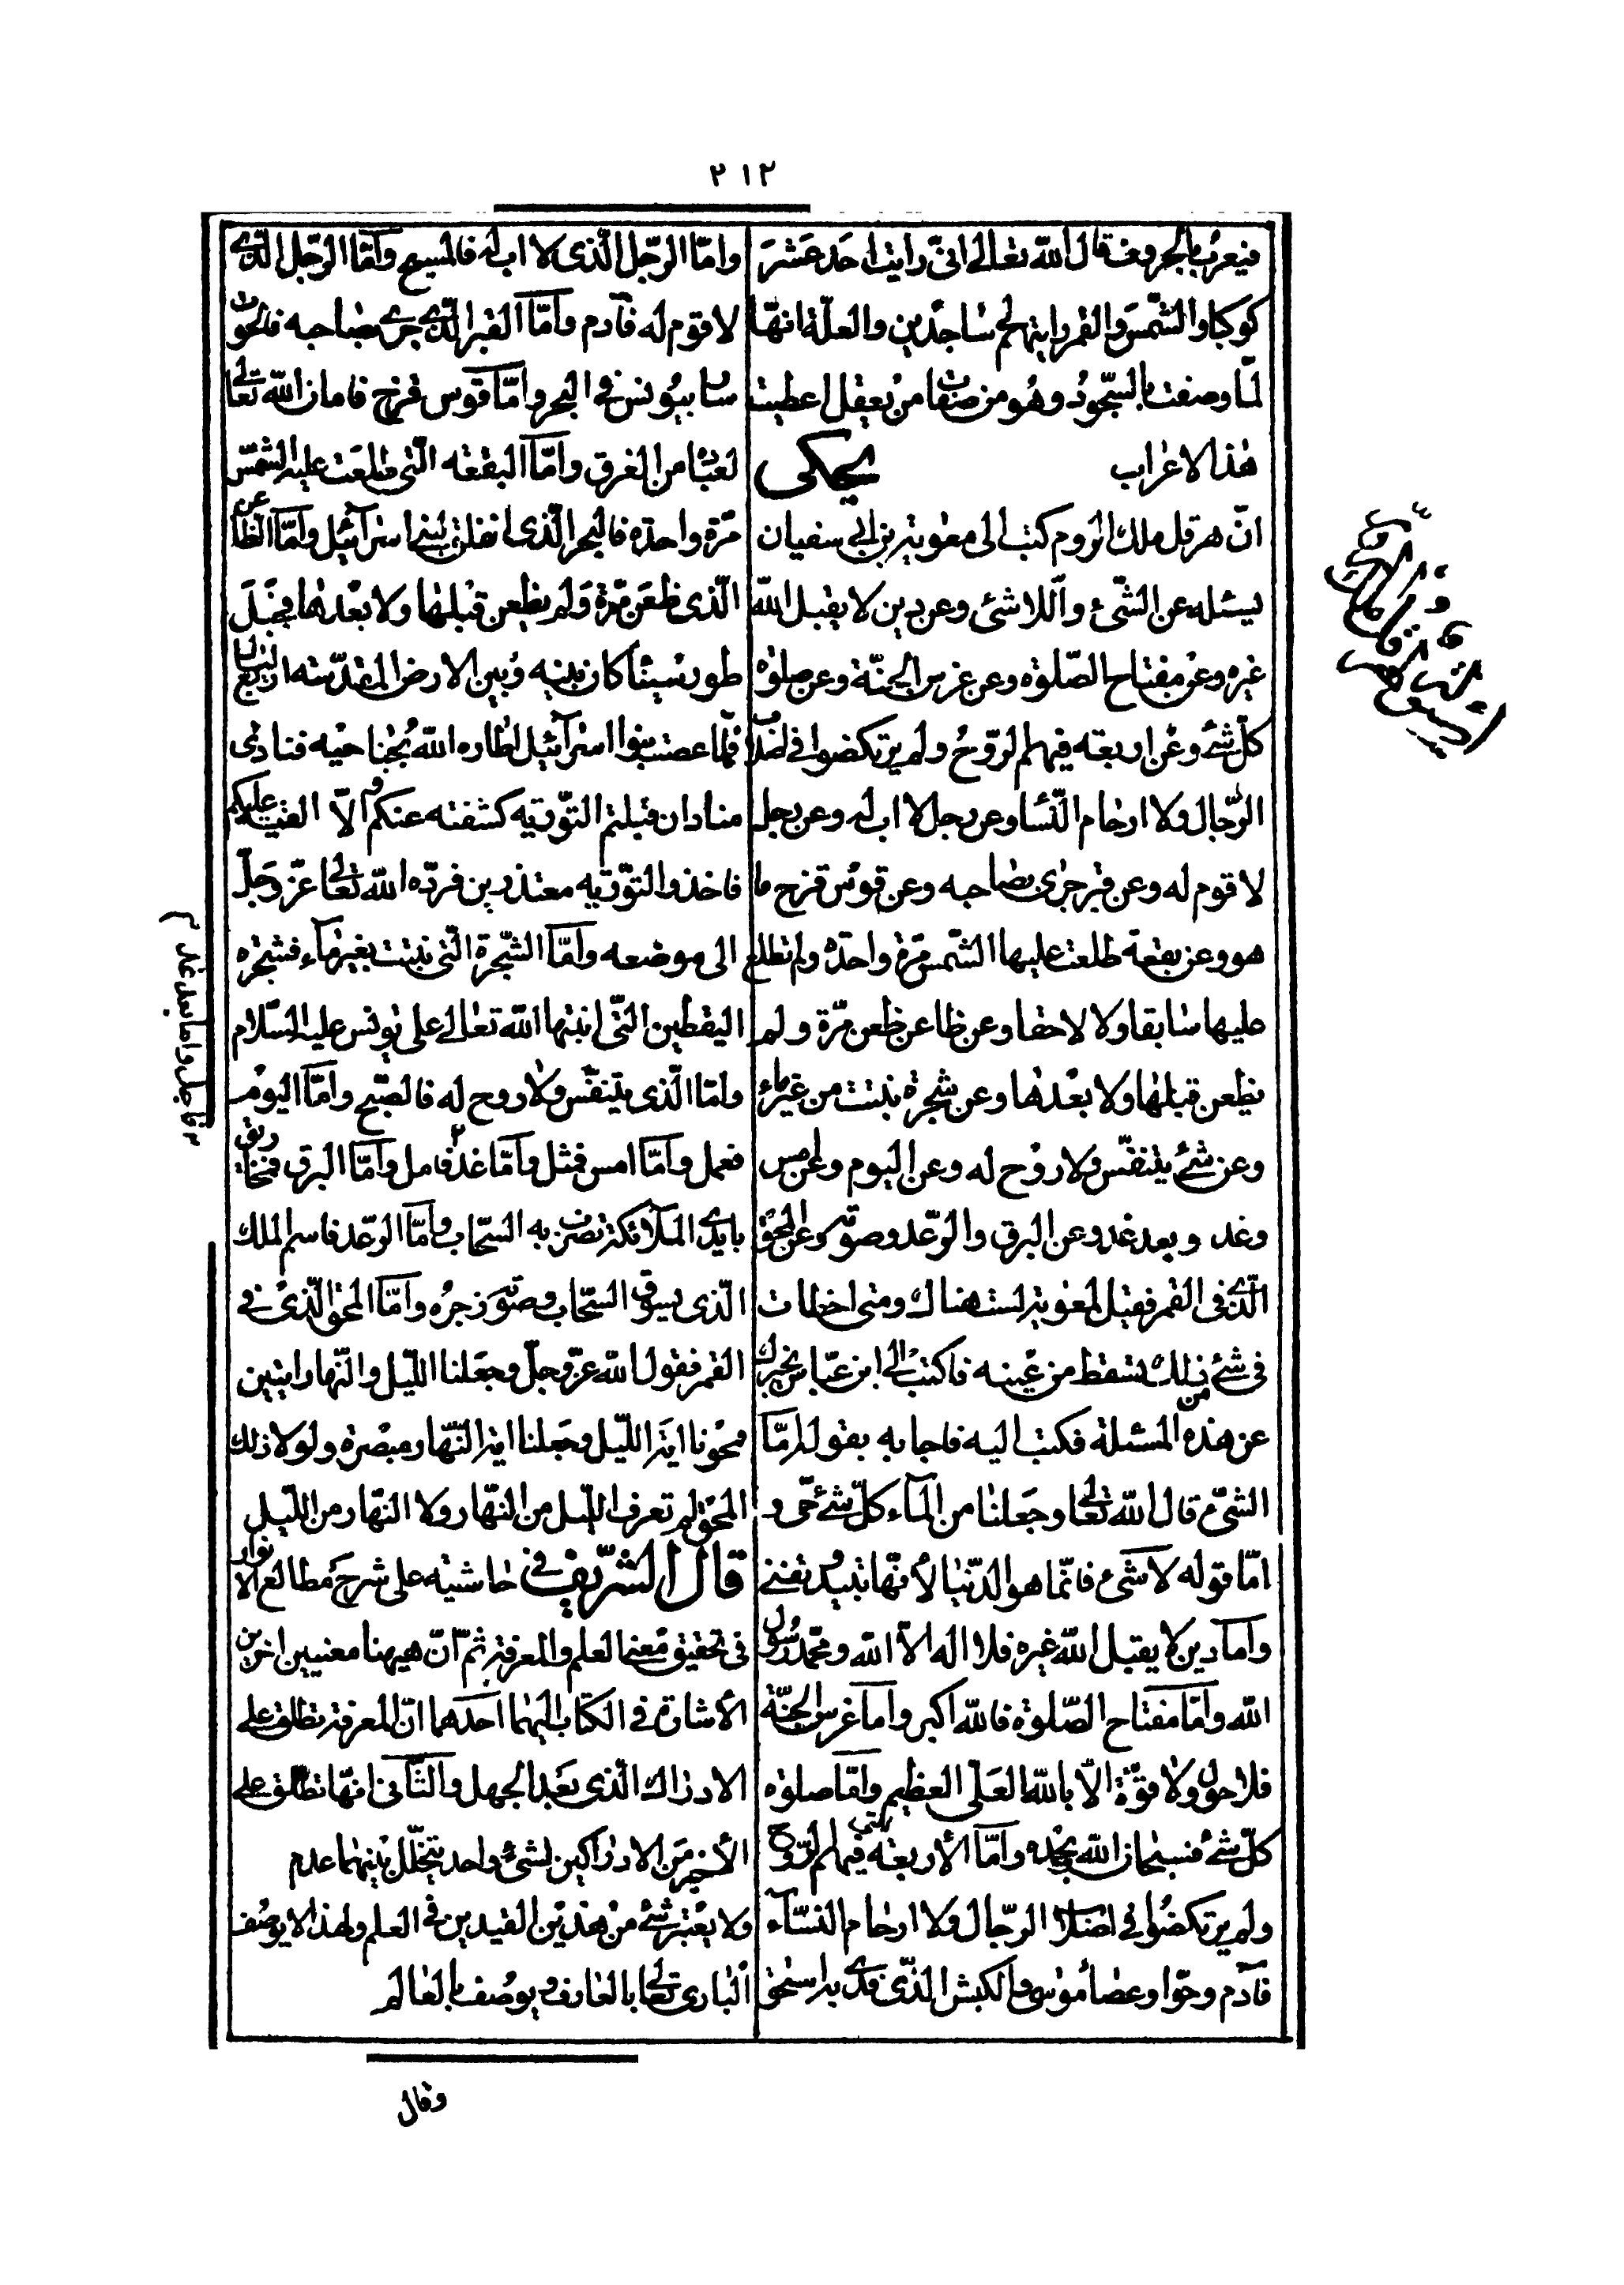 ٢١٢
فيعرب بالحروف قال الله تعالى انى رايت احد عشر
كوكبا والشمس والقمر رايتهم لى ساجدين والعلة انها
لما وصفت بالسجود وهو من صفات من يعقل اعطيت
هذا الاعراب يحكى
ان هرقل ملك الروم كتب الى معوية بن ابى سفيان
يسئله عن الشىء واللاشئ وعن دين لا يقبل الله
غيره وعن مفتاح الصلوة وعن غرس الجنة وعن صلوة
كل شئ وعن اربعة فيهم الروح ولم يرتكضوا فى اصلاب
الرجال ولا ارحام النسا وعن رجل لا اب له وعن رجل
لا قوم له وعن قبر جرى بصاحبه وعن قوس قزح ما
هو وعن بقعة طلعت عليها الشمس مرة واحدة ولم تطلع
عليها سابقا ولا لاحقا وعن ظاعن ظعن مرة ولم
يظعن قبلها ولا بعدها وعن شجرة نبتت من غير ماء
وعن شئ يتنفس ولا روح له وعن اليوم وعن امس
وغد وبعد غد وعن البرق والرعد وصوته وعن المحو
الذى فى القمر فقيل لمعوية لست هناك ومتى اخطات
فى شئ من ذلك تسقط من عينه فاكتب الى ابن عباس يخبرك
عن هذه المسئلة فكتب اليه فاجابه بقوله امّا
الشئ قال الله تعالى وجعلنا من المآء كل شئ حى و
امّا قوله لا شئ فانما هو الدنيا لانها تبيد وتفنى
وامّا دين لا يقبل الله غيره فلا اله الا الله ومحمد رسول
الله وامّا مفتاح الصلوة فالله اكبر وامّا غرس الجنة
فلا حول ولا قوة الا بالله العلى العظيم وامّا صلوة
كل شئ فسبحان الله بحمده وامّا الأربعة التى فيهم الروح
ولم يرتكضوا فى اصلاب الرجال ولا ارحام النسآء
فآدم وحوا وعصا موسى والكبش الذى فدى به اسحق
وامّا الرجل الذى لا اب له فالمسيح وامّا الرجل الذى
لا قوم له فآدم وامّا القبر الذى جرى بصاحبه فالحوت
سار بيونس فى البحر وامّا قوس قزح فامان الله تعالى
لعباده من الغرق وامّا البقعة التى طلعت عليها الشمس
مرة واحدة فالبحر الذى انفلق لبنى اسرآئيل وامّا الظاعن
الذى ظعن مرة ولم يظعن قبلها ولا بعدها فجبل
طور سينا كان بينه وبين الارض المقدسة اربع ليال
فلما عصت بنوا اسرآئيل اطاره الله بجناحيه فنادى
مناد ان قبلتم التورية كشفته عنكم والّا القيته عليكم
فاخذوا التورية معتذرين فرده الله تعالى عز وجل
الى موضعه وامّا الشجرة التى نبتت بغير مآء فشجرة
اليقطين التى انبتها الله تعالى على يونس عليه السلام
وامّا الذى يتنفس ولا روح له فالصبح وامّا اليوم
فعمل وامّا امس فمثل وامّا غد فامل وامّا البرق فمخاريق
بايدى الملآئكة تضرب به السحاب وامّا الرعد فاسم الملك
الذى يسوق السحاب وصوته زجره وامّا المحو الذى فى
القمر فقول الله عز وجل وجعلنا الليل والنهار ايتين
فمحونا اية الليل وجعلنا اية النهار مبصرة ولولا ذلك
المحو لم تعرف الليل من النهار ولا النهار من الليل
قال الشريف فى حاشيته على شرح مطالع الانوار
فى تحقيق معنى العلم والمعرفة ثم ان ههنا معنيين اخرين
الأشارة فى الكتاب اليهما احدهما ان المعرفة تطلق على
الادراك الذى بعد الجهل والثانى انها تطلق على
الأخير من الادراكين لشئ واحد يتخلل بينهما عدم
ولا يعتبر شئ من هذين القيدين فى العلم ولهذا لا يوصف
البارى تعالى بالعارف ويوصف بالعالم
فاجل واما بعد غد
وقال